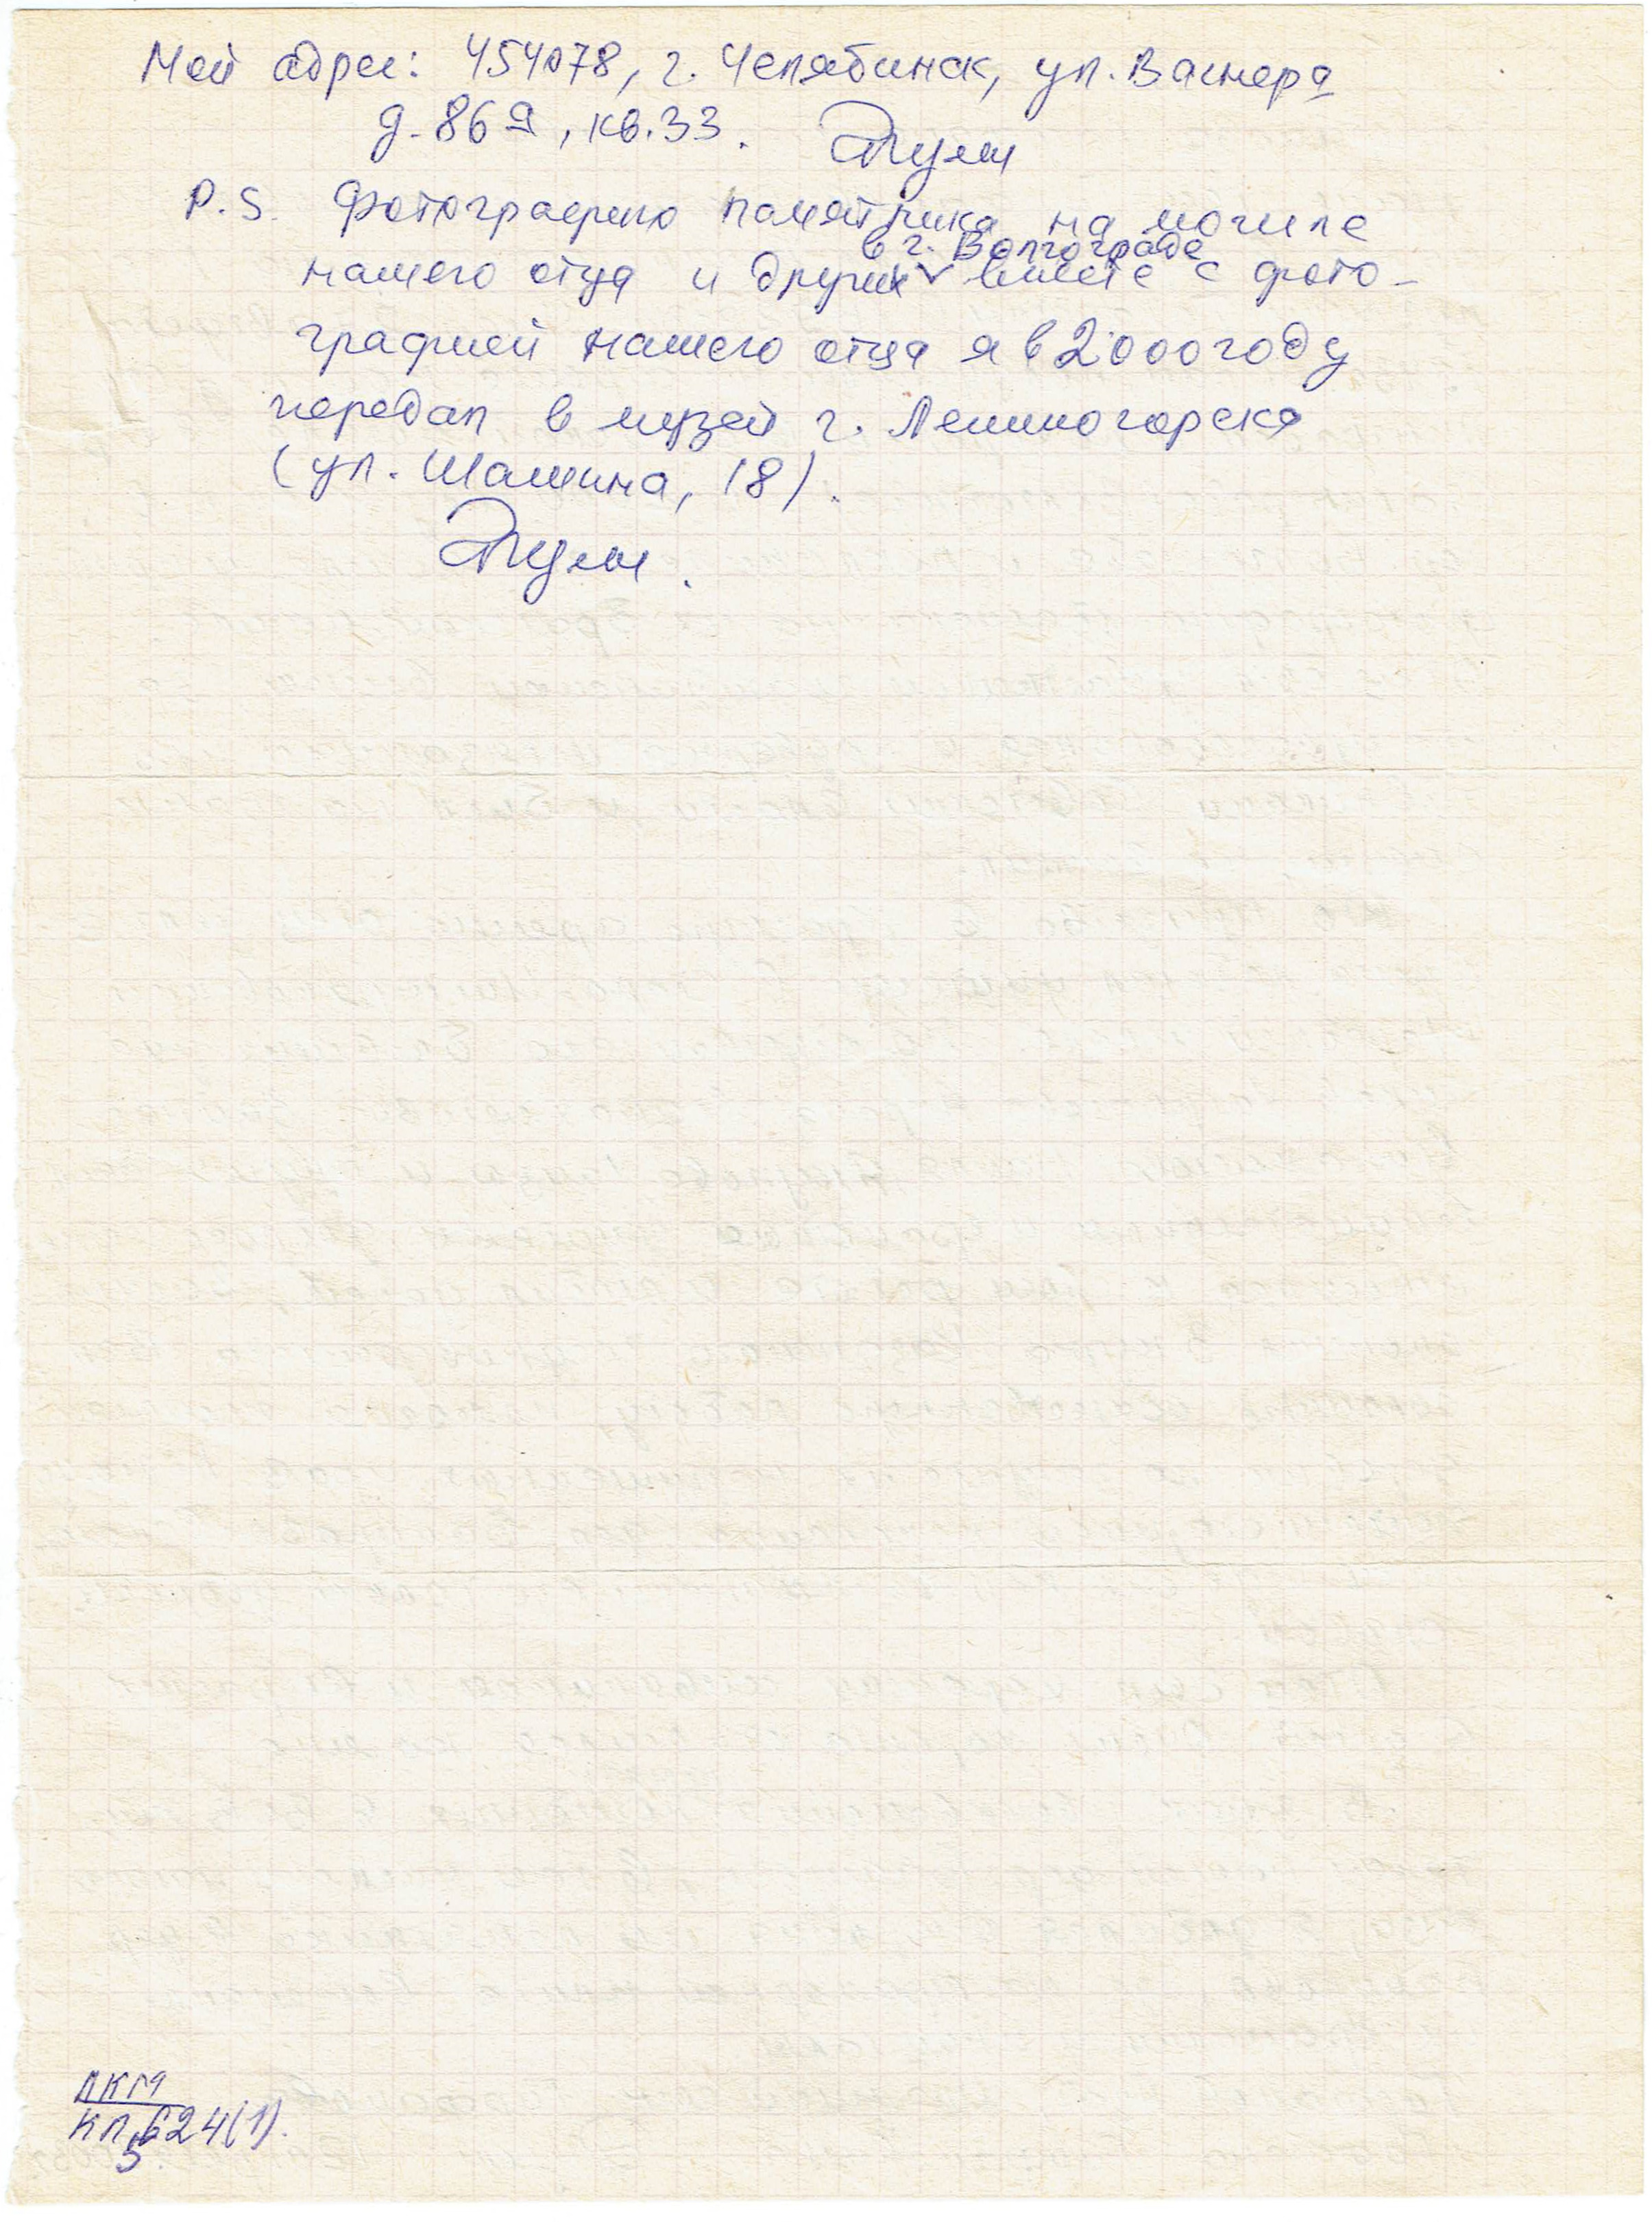 Мой адрес: 454078, г. Челябинск, ул. Вагнера
д. 86а, кв. 33.
P.S. Фотографию памятника на могиле
в г. Волгограде
нашего отца и других вместе с фото-
графией нашего отца я в 2000 году
передал в музей г. Лениногорска
(ул. Шашина, 18).
ЛКМ
КП 624(1).
5.